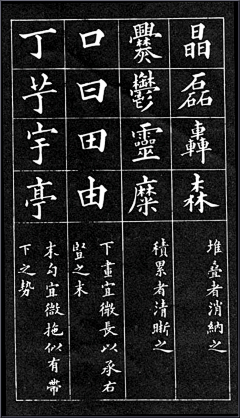 晶磊轟森
堆疊者消納之
爨鬱靈糜
積累者清晰之
口曰田由
下畫宜微長以承右
豎之末
丁芋宇亭
末勾宜微拖似有帶
下之勢